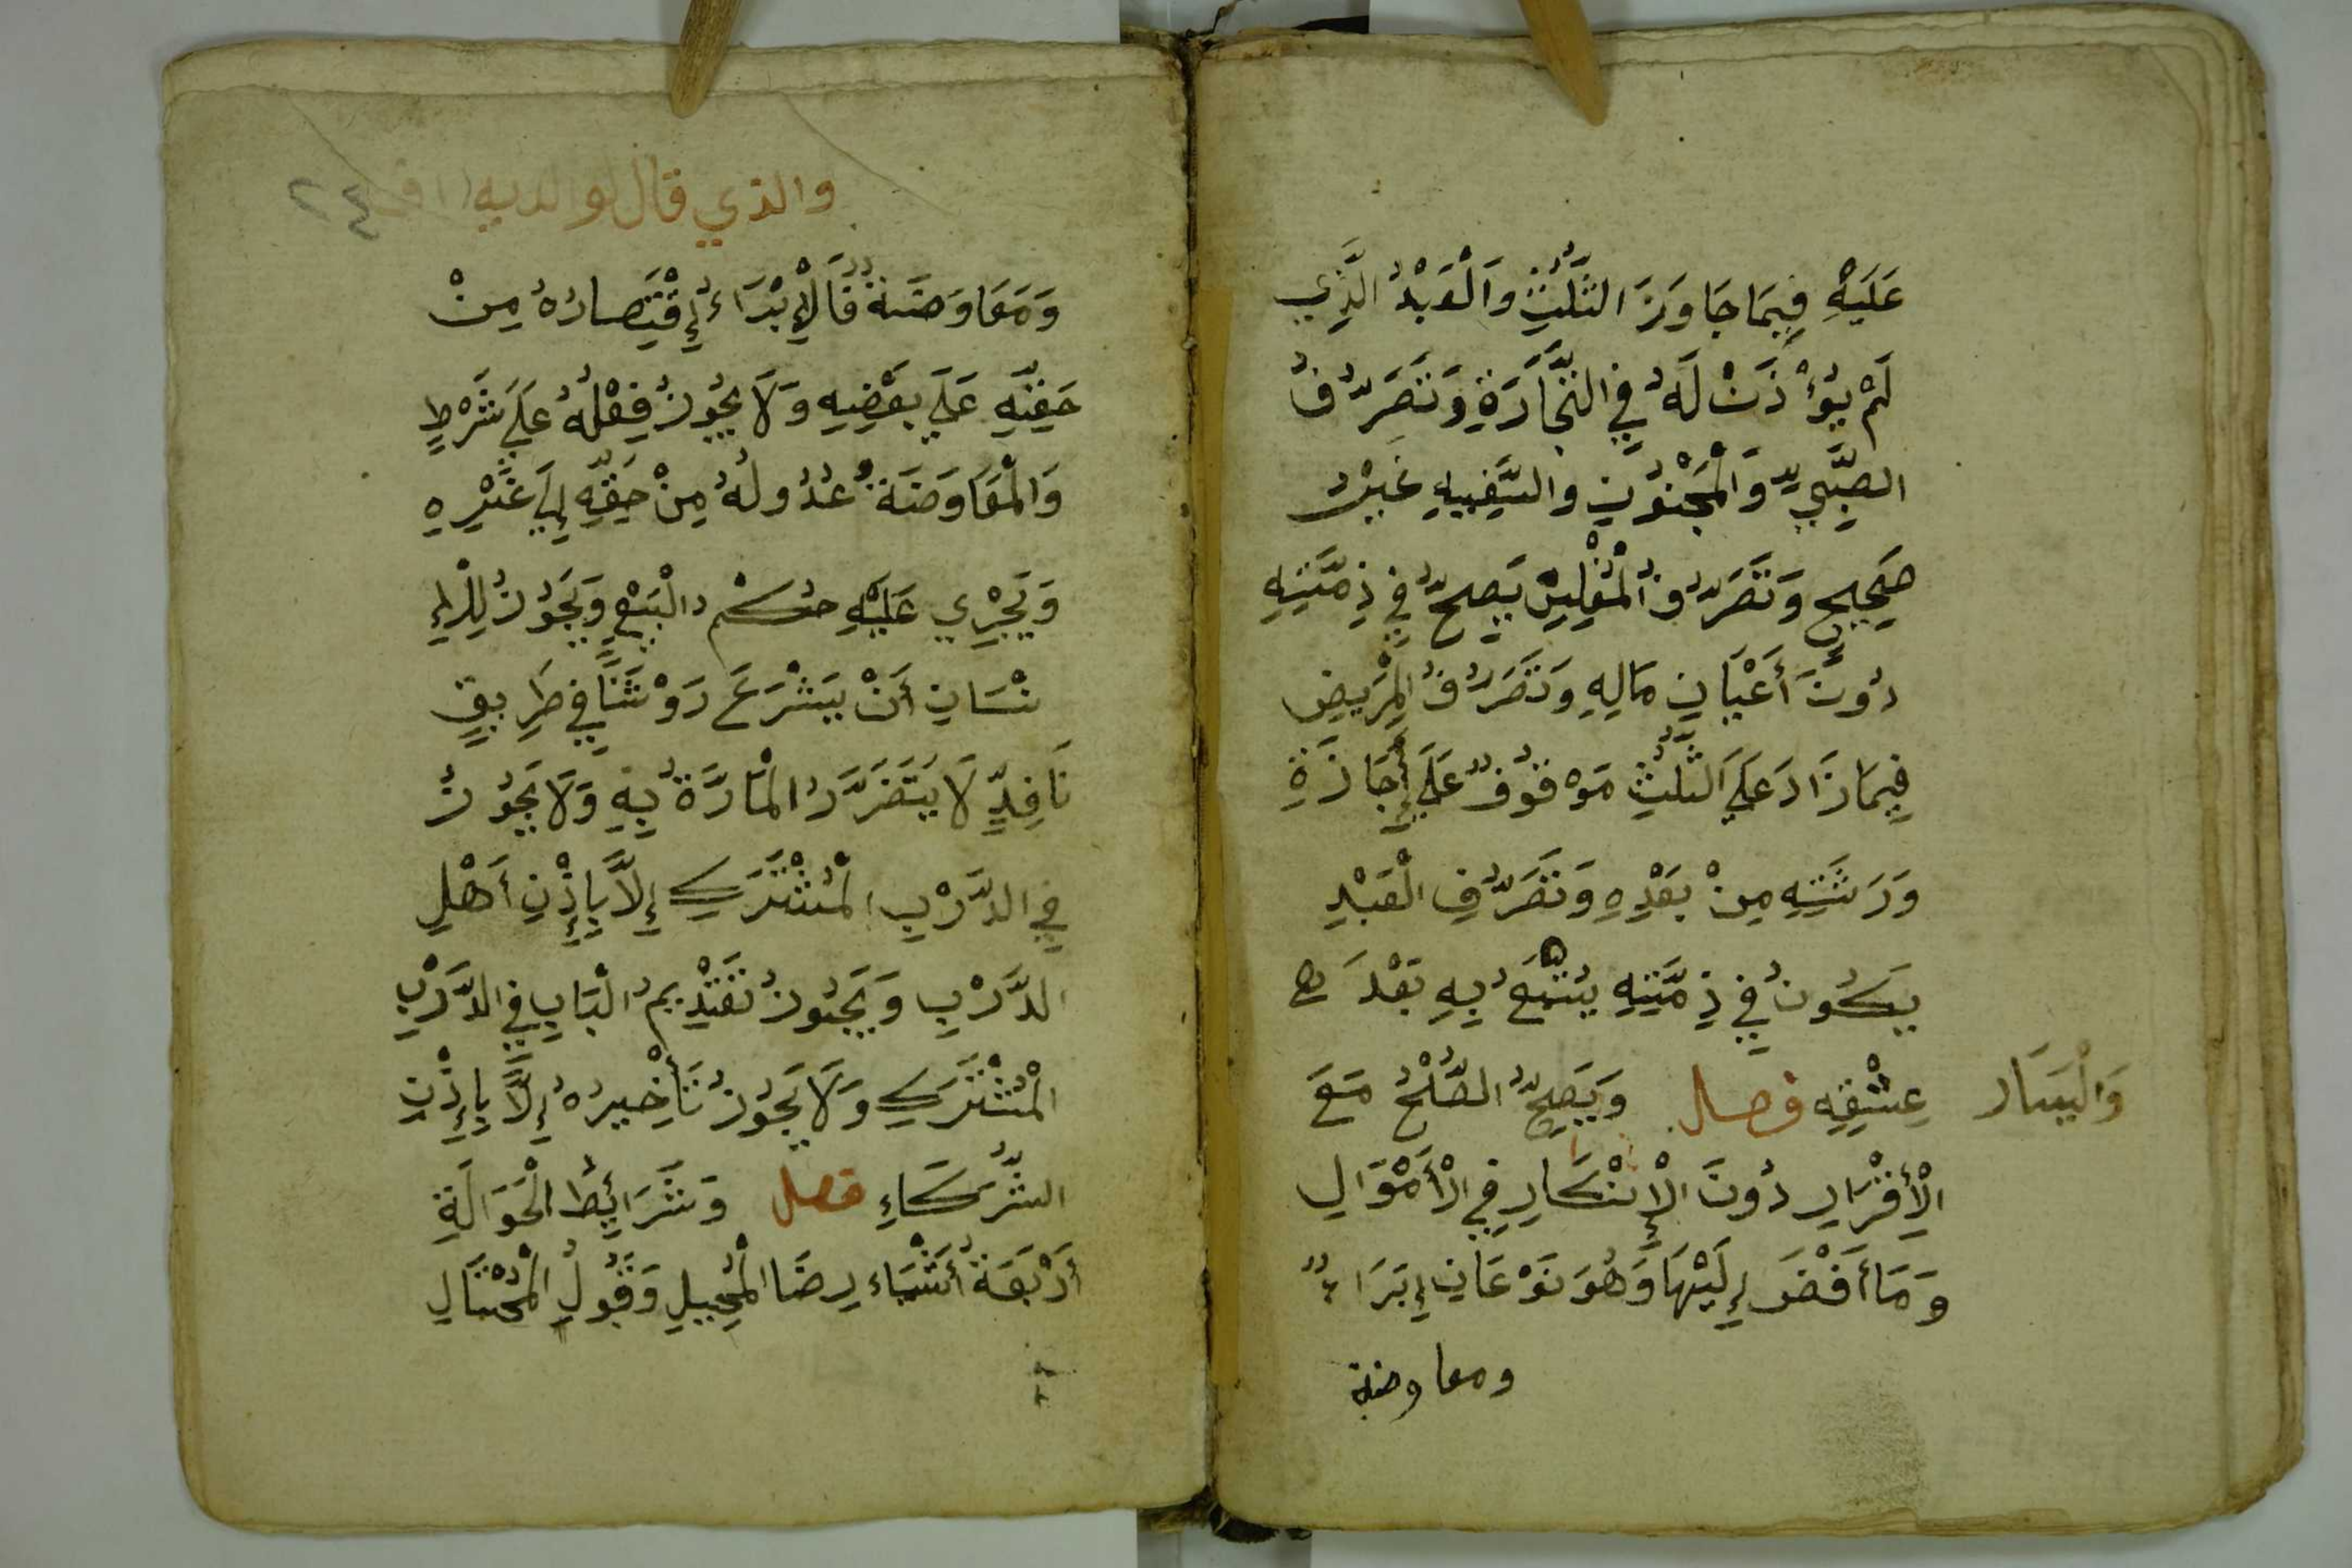 عَلَيْهِ فِيمَا جَاوَزَ الثُّلُثِ وَالْعَبْدُ الَّذِي
لَمْ يُؤْذَنْ لَهُ فِي التِّجَارَةِ وَتَصَرُّفُ
الصَّبِيِّ وَالْمَجْنُوْنِ وَالسَّفِيهِ غَيْرُ
صَحِيحٍ وَتَصَرُّفُ الْمُفْلِسْ يَصِحُّ فِي ذِمَّتِهِ
دُوْنَ أَعْيَانِ مَالِهِ وَتَصَرُّفُ الْمَرِيضِ
فِيمَا زَادَ عَلَى الثُّلُثِ مَوْقُوْفٌ عَلَى إِجَازَةِ
وَرَثَتِهِ مِنْ بَعْدِهِ وَتَصَرُّفِ الْعَبْدِ
يَكُونُ فِي ذِمَّتِهِ يُتْبَعُ بِهِ بَعْدَ
وَالْيَسَار
عِتْقِهِ فصل وَيَصِحُّ الصُّلْحُ مَعَ
الْإِقْرَارِ دُوْنَ الْإِنْكَارِ فِي الْأَمْوَالِ
وَمَا أَفْضَى إِلَيْهَا وَهُوَ نَوْعَانِ إِبَرَاءٌ
ومعاوضة
والذي قال لوالديه اف ٢٤
وَمَعَاوَضَةٌ فَالْإِبْرَاءُ إِقْتِصَارُهُ مِنْ
حَقِّهِ عَلَى بَعْضِهِ وَلَا يَجُوْزُ فِعْلُهُ عَلَى شَرْطٍ
وَالْمَعَاوَضَةُ عُدُولُهُ مِنْ حَقِّهِ إِلَى غَيْرِهِ
وَيَجْرِي عَلَيْهِ حُكْمُ الْبَيْعِ وَيَجُوْزُ لِلْإِ
نْسَانِ أَنْ يَشْرَعَ رَوْشَنًا فِي طَرِيقٍ
نَافِذٍ لَا يَتَضَرَّرُ الْمَارَّةُ بِهِ وَلَا يَجُوْزُ
فِي الدَّرْبِ الْمُشْتَرَكِ إِلَّا بِإِذْنِ أَهْلِ
الدَّرْبِ وَيَجُوزُ تَقْدِيمُ الْبَابِ فِي الدَّرْبِ
الْمُشْتَرَكِ وَلَا يَجُوْزُ تَأْخِيرُهُ إِلَّا بِإِذْنِ
الشُّرَكَاءِ فصل وَشَرَائِطُ الْحَوَالَةِ
أَرْبَعَةُ أَشْيَاء رِضَا الْمُحِيلِ وَقَبُوْلُ الْمُحْتَالِ